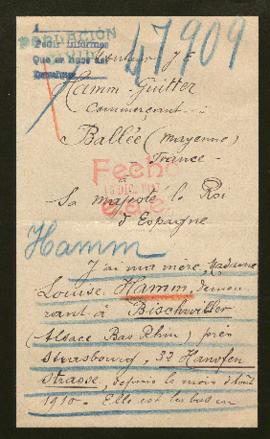 47909
Pedir informes
Monsieur J.
Hamm-Guitter
Commerçant
Ballée (Mayenne)
France
Fecha
Sa majesté le Roi
d'Espagne
Hamm
J'ai ma mère, Madame
Louise Hamm, demeu
rant à Bischwiller
(Alsace Bas Rhin) près
Strasbourg, 32 Hanofen
Strasse, depuis le mois d'août
1910. Elle est